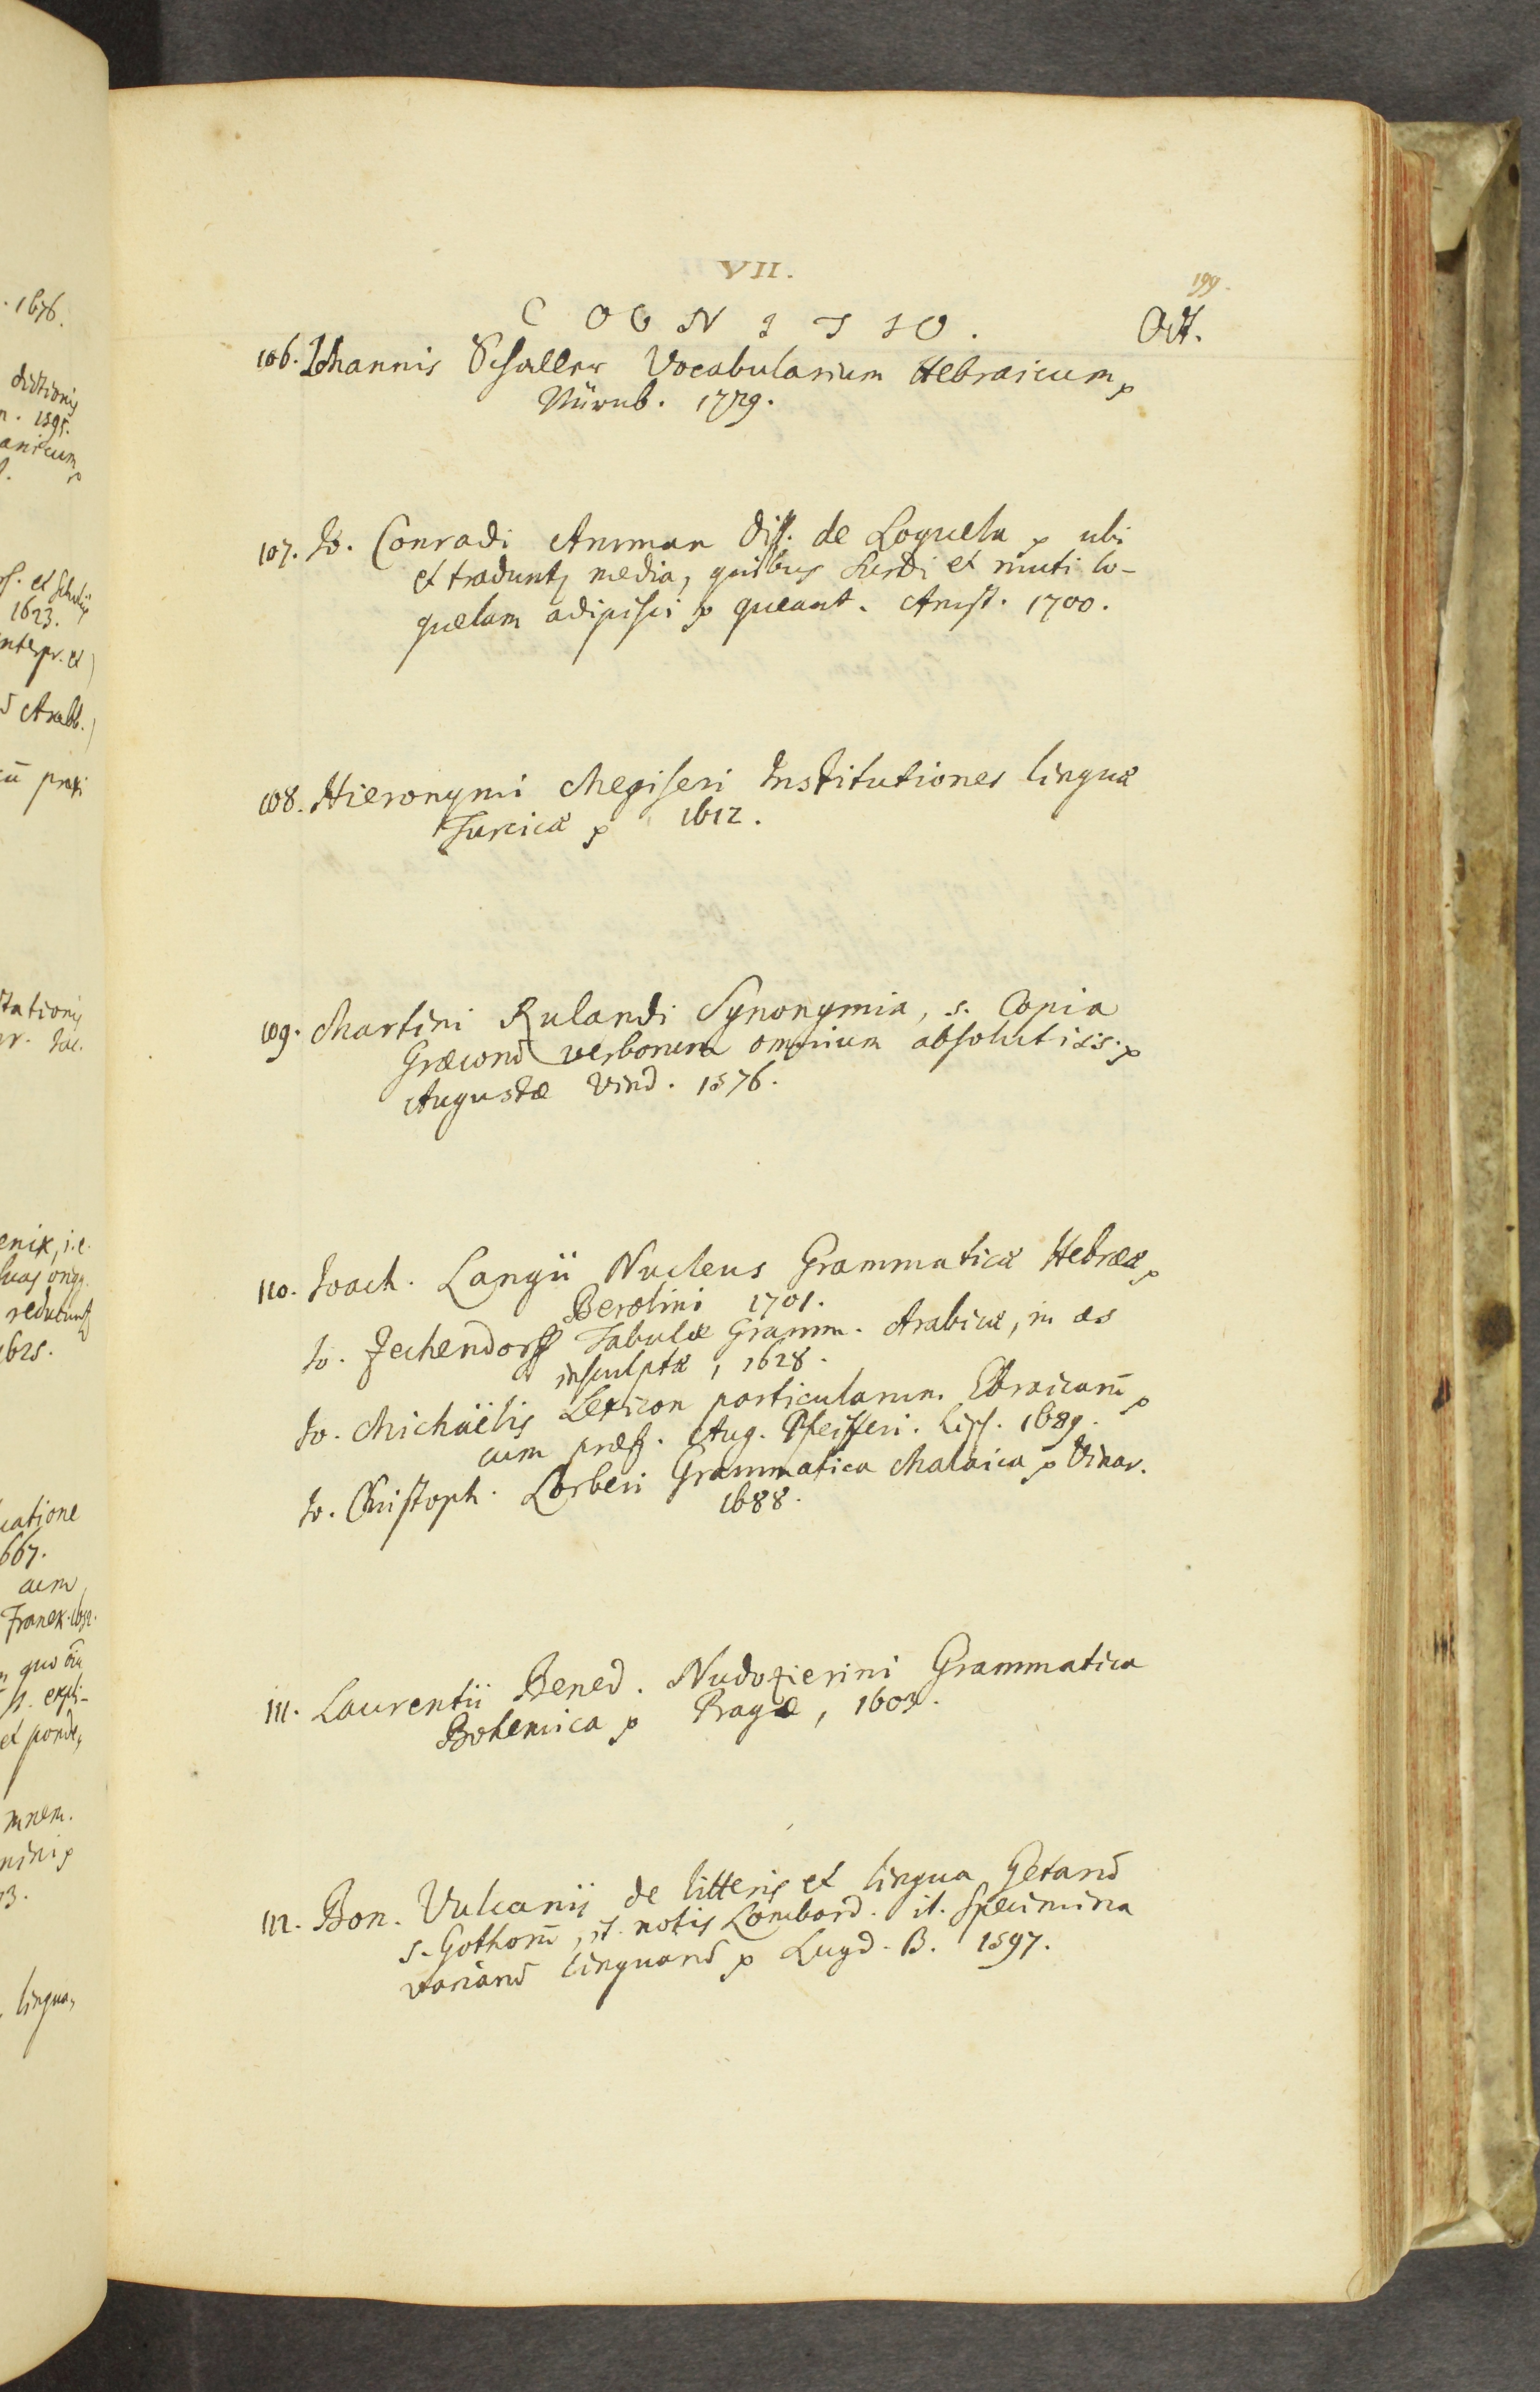 · 1676.
dictionis
n. 1595.
anicum
1623.
interpr. et
Arabb.
praxi
tationis
enix, i.e.
1625.
catione
667.
cum
Franek.
quo
expli-
et
mnem.
lingua,
VII.
199.
COGNITIO. Oct.
106. Iohannis Schaller Vocabularium Hebraicum p
Nürnb. 1729.
107. Io. Conradi Amman diss. de Loquela p ubi
et traduntz media, quibus surdi et muti lo-
quelam adipisci p queant. Amst. 1700.
108. Hieronymi Megiseri Institutiones linguæ
Turcicæ p 1612.
109. Martini Rulandi Synonymia, s. Copia
Græcorū verborum omnium absolutiss. p
Augustæ Vind. 1576.
110. Ioach. Langii Nucleus Grammaticæ Hebrææ p
Berolini 1701.
Io. Zechendorff Tabulæ Gramm. Arabicæ, in æs
insculptæ, 1628.
Io. Michaëlis Lexicon particularum Ebraicarū p
cum præf. Aug. Pfeifferi. Lips. 1689.
Io. Christoph. Lorberi Grammatica Malaica p Vinar.
1688.
111. Laurentii Bened. Nudozierini Grammatica
Bohemica p Pragæ, 1603.
112. Bon. Vulcanii de litteris et lingua Getarū
s. Gothorū, it. notis Lombard. it. Specimina
variarū linguarū p Lugd. B. 1597.